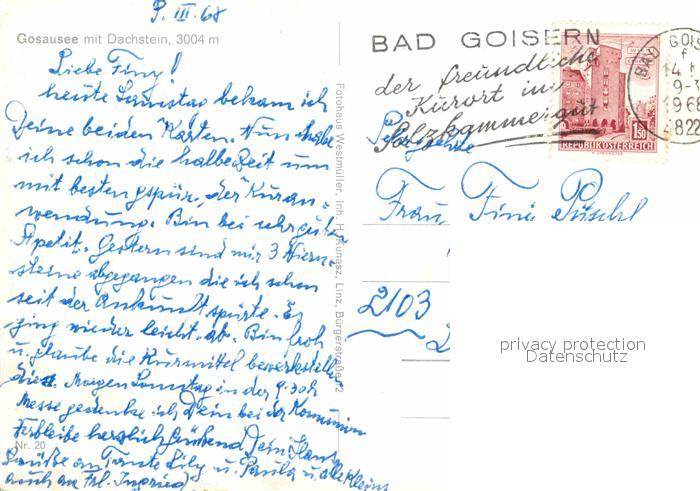 9. III. 68
Gosausee mit Dachstein, 3004 m
Liebe Finy!
heute Samstag bekam ich
Deine beiden Karten. Nun habe
ich schon die halbe Zeit um
mit besten gspür, der Kuran=
wendung. Bin bei sehr guten
Apetit. Gestern sind mir 3 Niern=
steine abgegangen die ich schon
seit der Ankunft spürte. Es
ging wieder leicht ab. Bin froh
u. glaube die Kurmittel bewerkstellen
dies. Morgen Sonntag in der 9.30h
Messe gedenke ich Dein bei der Komunion
Verbleibe herzlich grüßend Dein Hans
Nr. 20
Grüße an Tante Lily u. Paula u. alle kleins
auch an Frl. Ingried
Fotohaus Westmüller, Inh. H. Kunasz, Linz, Bürgerstraße 2
BAD GOISERN
der freundliche
Kurort im
Salzkammergut
BAD GOIS
9-
196
4822
1.50
REPUBLIK ÖSTERREICH
Sehrgeehrte
Frau, Fini Püschl
2103
privacy protection
Datenschutz